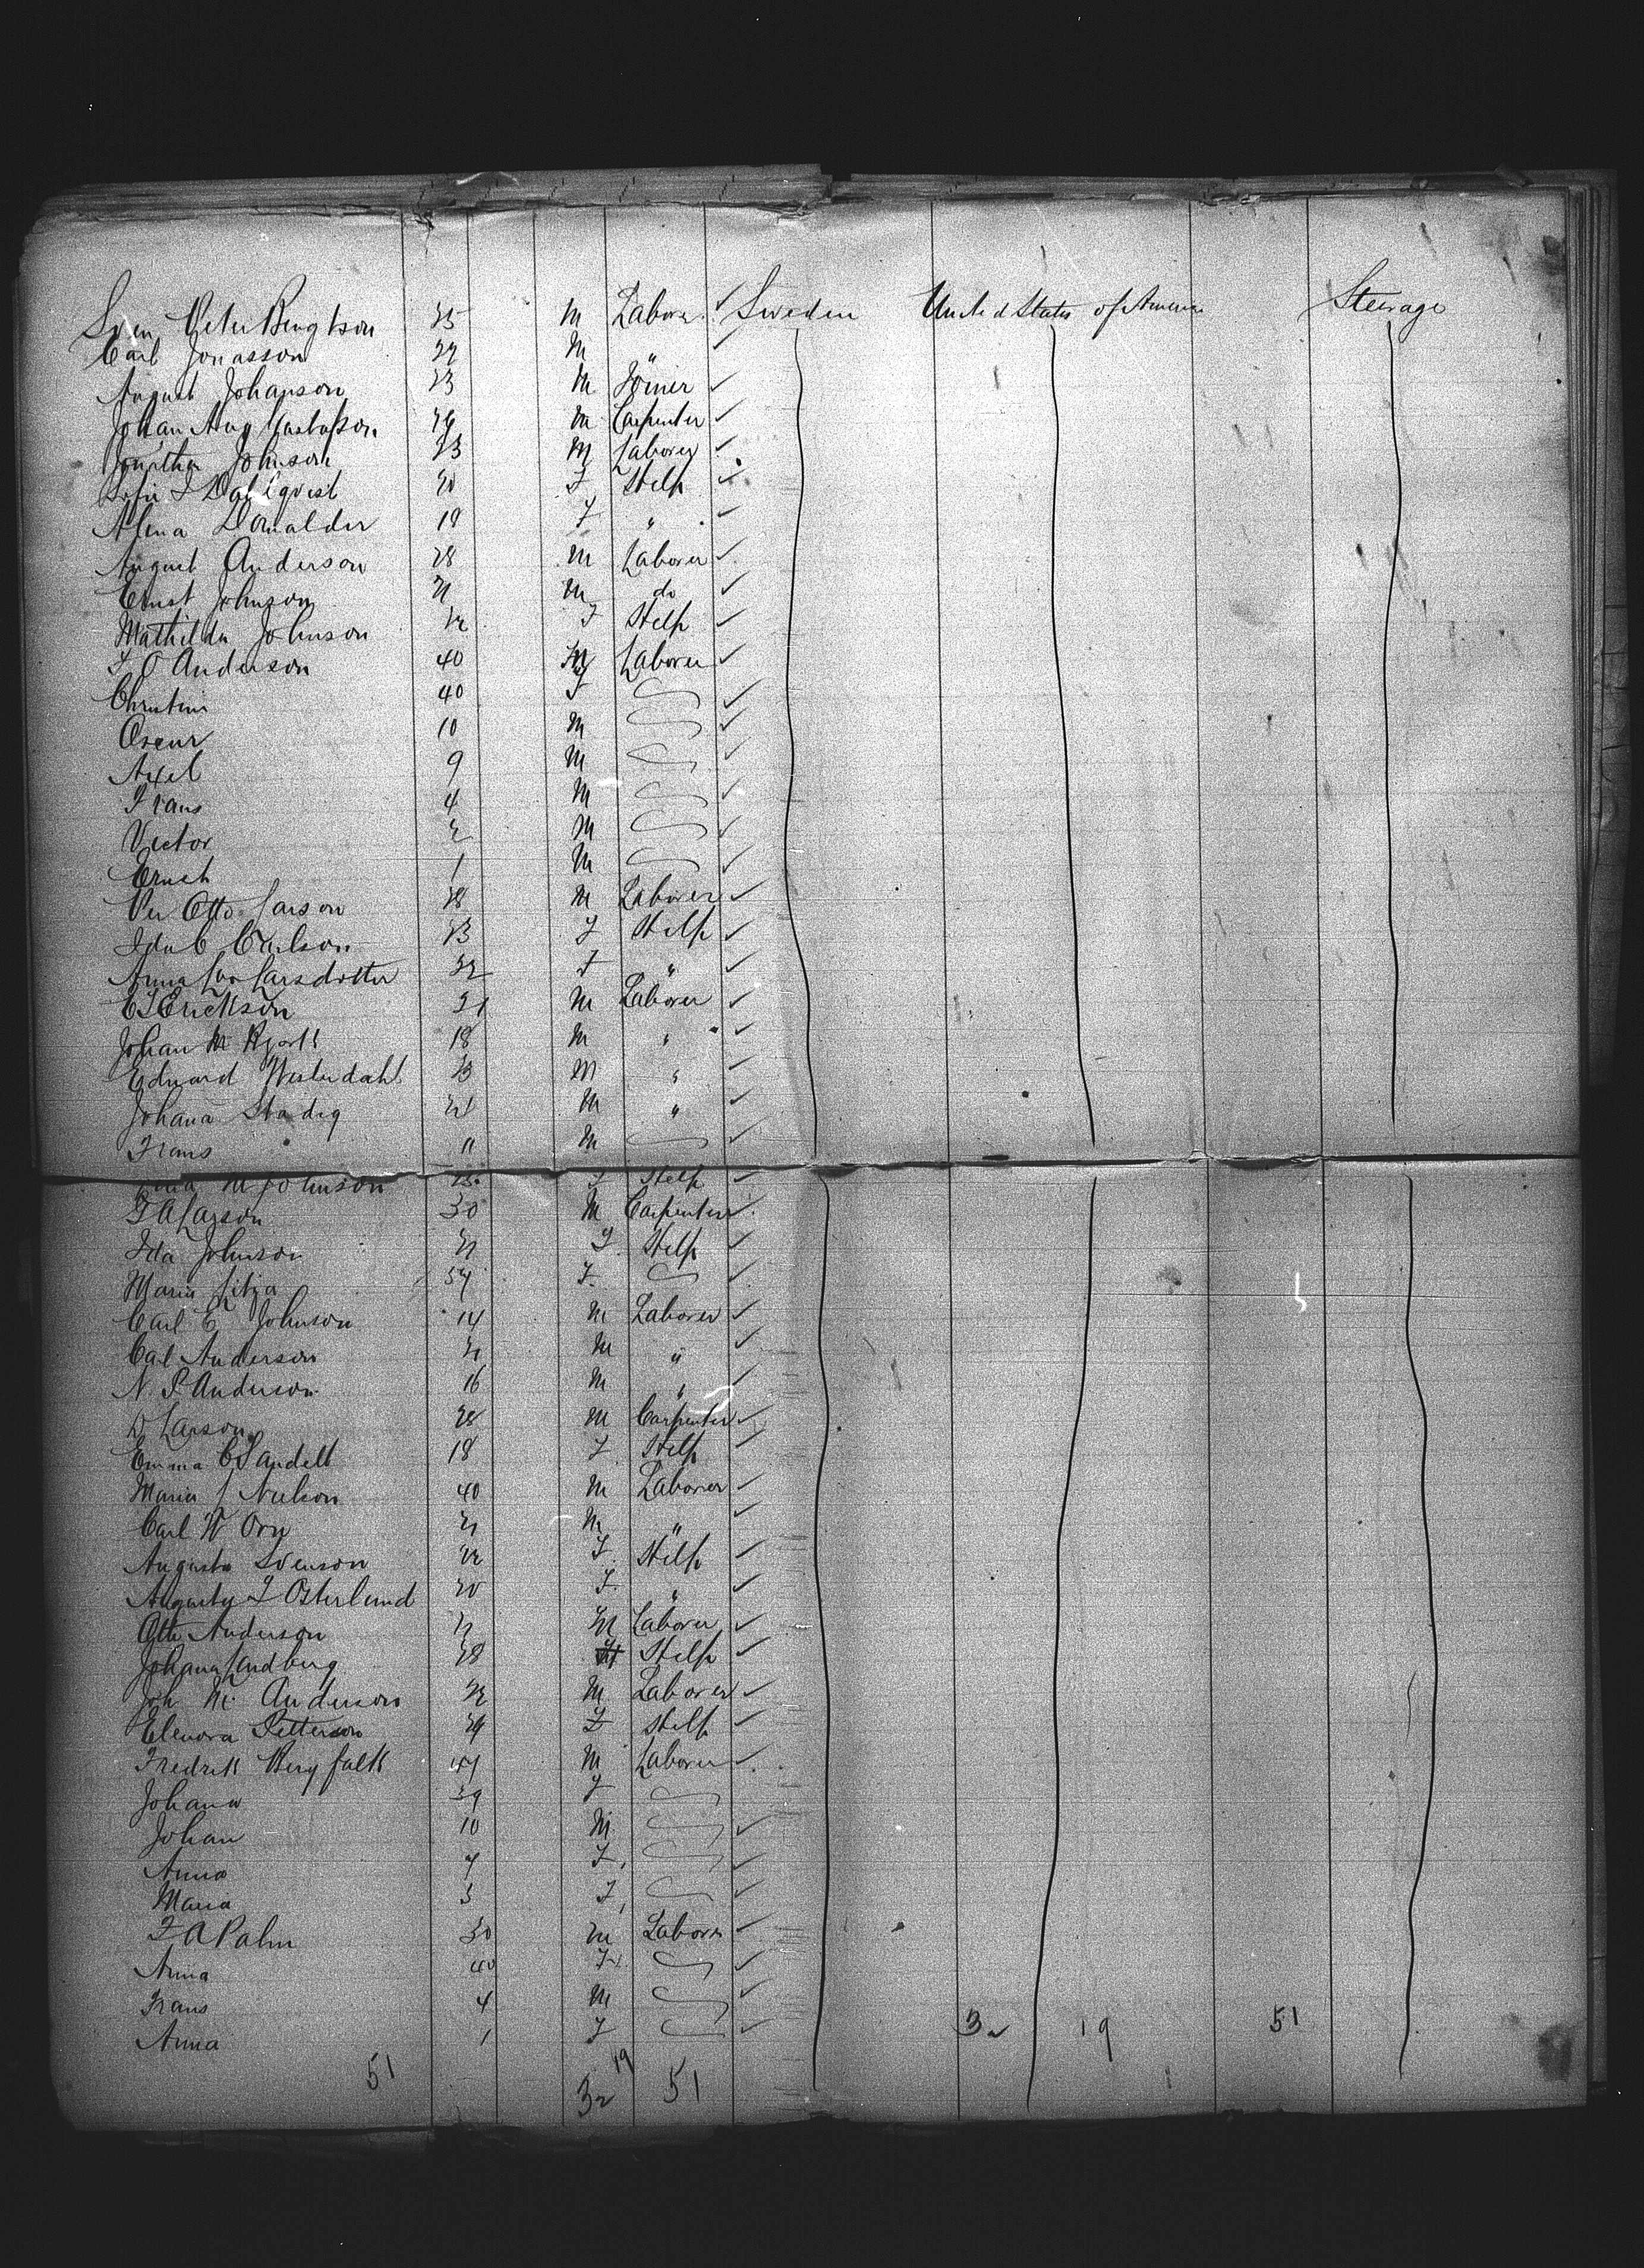 Sven Peter Bengtson 25 M Laborer ✓ Sweden United States of America Steerage
Carl Jonasson 29 M " ✓
August Johanson 23 M Joiner ✓
Johan Aug Gustafson 24 M Carpenter ✓
Johnson 23 M Laborer ✓
Sofia Dahlqvist 20 F Help ✓
Alma 19 F " ✓
August Anderson 28 M Laborer ✓
Ernst Johnson 21 M do ✓
Mathilda Johnson 22 F Help ✓
F O Anderson 40 M Laborer ✓
Christini 40 F ✓
Oscar 10 M ✓
Axel 9 M ✓
Frans 4 M ✓
Victor 2 M ✓
Ernest 1 M ✓
Per Otto Larson 28 M Laborer ✓
Ida C Carlson 23 F Help ✓
Anna Lisa Larsdotter 32 F " ✓
Erickson 21 M Laborer ✓
Johan M 18 M " ✓
Edward Westerdahl 23 M " ✓
Johana Stadig 21 M " ✓
Frans 11 M ✓
M Johnson F Help ✓
F A Larson 30 M Carpenter ✓
Ida Johnson 21 F Help ✓
Maria 54 F ✓
Carl E Johnson 14 M Laborer ✓
Cal Anderson 21 M " ✓
N P Anderson 16 M " ✓
Larson 28 M Carpenter ✓
Emma C Sandell 18 F Help ✓
Maria Neelson 40 M Laborer ✓
Carl W Orn 21 M " ✓
Augusta Svenson 22 F Help ✓
Augusta F Osterlund 20 F " ✓
Otto Anderson 21 M Laborer ✓
Johana Sandberg 28 F Help ✓
Joh M. Anderson 22 M Laborer ✓
Elenora Petterson 29 F Help ✓
Fredrik Bergfalk 47 M Laborer ✓
Johana 39 F
Johan 10 M ✓
Anna 7 F ✓
Maria 3 F ✓
F A Palm 30 M Laborer ✓
Anna 40 F ✓
Frans 4 M ✓
Anna 1 F ✓ 32 19 51
51 32 19 51